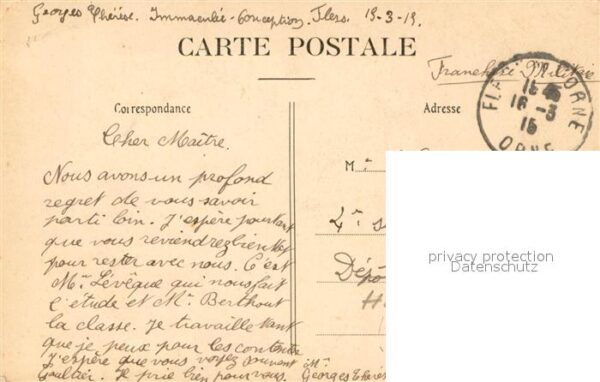 Georges Thérèse. Immaculée-Conception. Flers. 15-3-15.
CARTE POSTALE
Franchise Militaire
Correspondance
Adresse
FLERS ORNE
16-3
15
ORNE
Cher Maître.
Nous avons un profond
regret de vous savoir
parti loin. J'espère pourtant
que vous reviendrez bientôt
pour rester avec nous. C'est
Mr. Lévêque qui nous fait
l'étude et Mr. Berthout
la classe. Je travaille tant
que je peux pour les contenter
J'espère que vous voyez souvent Mr.
Gaultier. Je prie bien pour vous.
Georges Thérès
M.
Dépô
privacy protection
Datenschutz